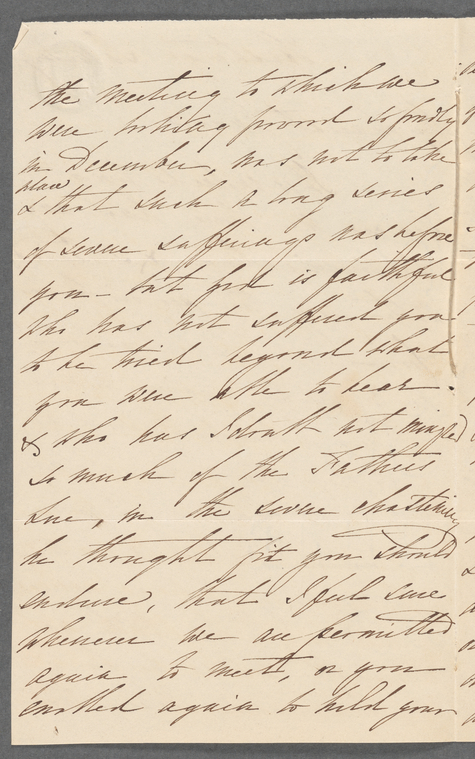 the meeting to which we
were looking forward so fondly
in December, was not to take
place
& that such a long series
of severe sufferings was before
you - but God is faithful
who has not suffered you
to be tried beyond what
you were able to bear -
& who has I doubt not mingled
so much of the Fathers
love, in the severe chastening
he thought fit you should
endure, that I feel sure
whenever we are permitted
again to meet, or you
enabled again to hold your